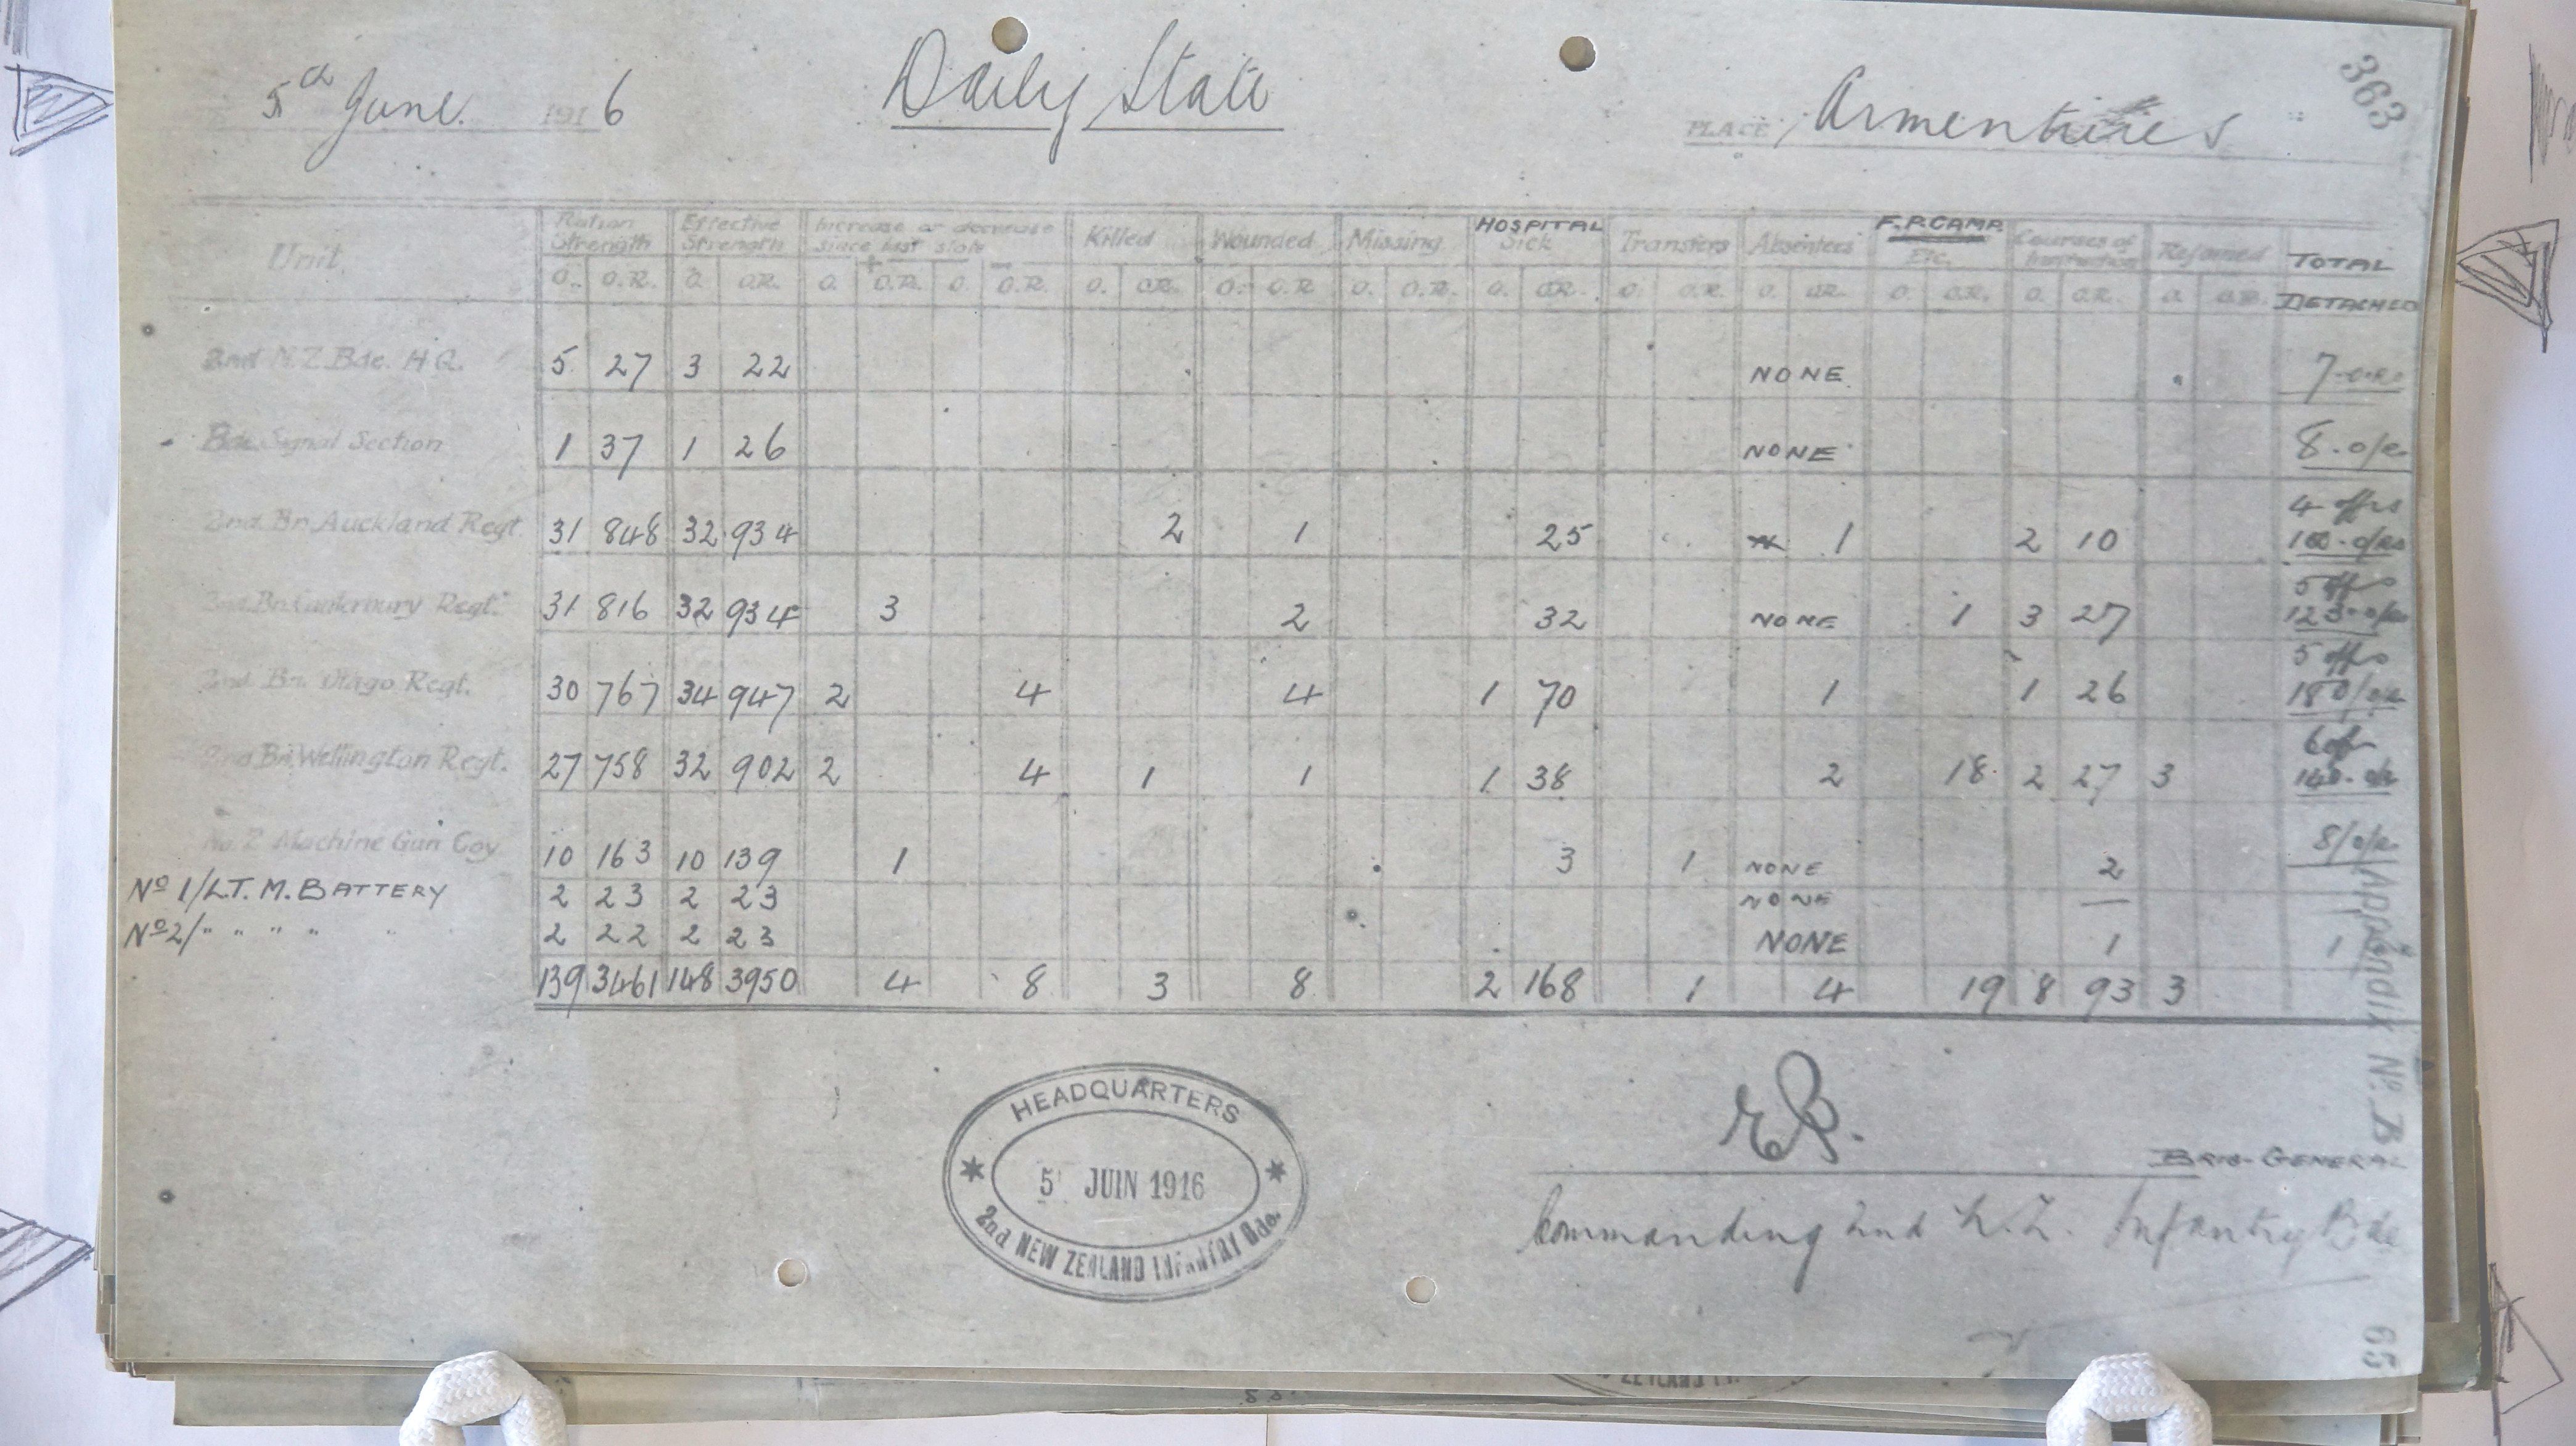 363
5th June. 1916
Daily State
PLACE Armentieres
Unit
Ration Strength
Effective Strength
Increase or decrease since last state
+ −
Killed
Wounded
Missing
HOSPITAL Sick
Transfers
Absentees
F.P. CAMP. Etc.
Courses of Instruction
Rejoined
TOTAL DETACHED
O. O.R. O. O.R. O. O.R. O. O.R. O. O.R. O. O.R. O. O.R. O. O.R. O. O.R. O. O.R. O. O.R. O. O.R. O. O.R.
2nd N.Z. Bde. H.Q. 5 27 3 22 NONE 7-o.rs
Bde. Signal Section 1 37 1 26 NONE 8.o/rs
2nd. Bn. Auckland Regt. 31 848 32 934 2 1 25 1 2 10 4 offrs 100-o/rs
2nd. Bn. Canterbury Regt. 31 816 32 934 3 2 32 NONE 1 3 27 5 offs 123-o/rs
2nd. Bn. Otago Regt. 30 767 34 947 2 4 4 1 70 1 1 26 5 offs 180/ors
2nd Bn. Wellington Regt. 27 758 32 902 2 4 1 1 1 38 2 18 2 27 3 6 ofr 140-o/r
No. 2 Machine Gun Coy 10 163 10 139 1 3 1 NONE 2 8/o/rs
No 1/ L.T. M. BATTERY 2 23 2 23 NONE —
No 2/ " " " " " 2 22 2 23 NONE 1 1
139 3461 148 3950 4 8 3 8 2 168 1 4 19 8 93 3
Appendix No. B
HEADQUARTERS
5 JUIN 1916
2nd NEW ZEALAND INFANTRY Bde.
BRIG-GENERAL
Commanding 2nd N.Z. Infantry Bde
65